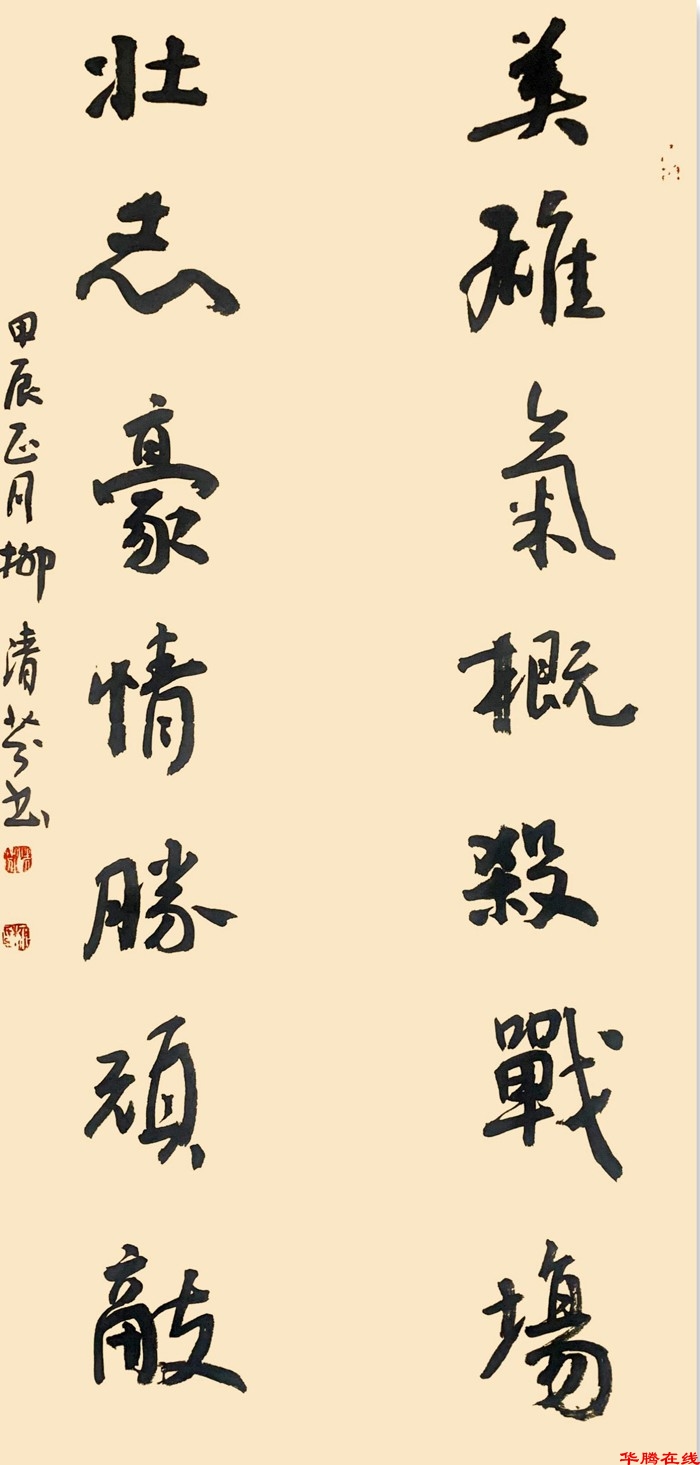 英雄氣概殺戰場
壯志豪情勝頑敵
甲辰正月柳清芬书
华腾在线